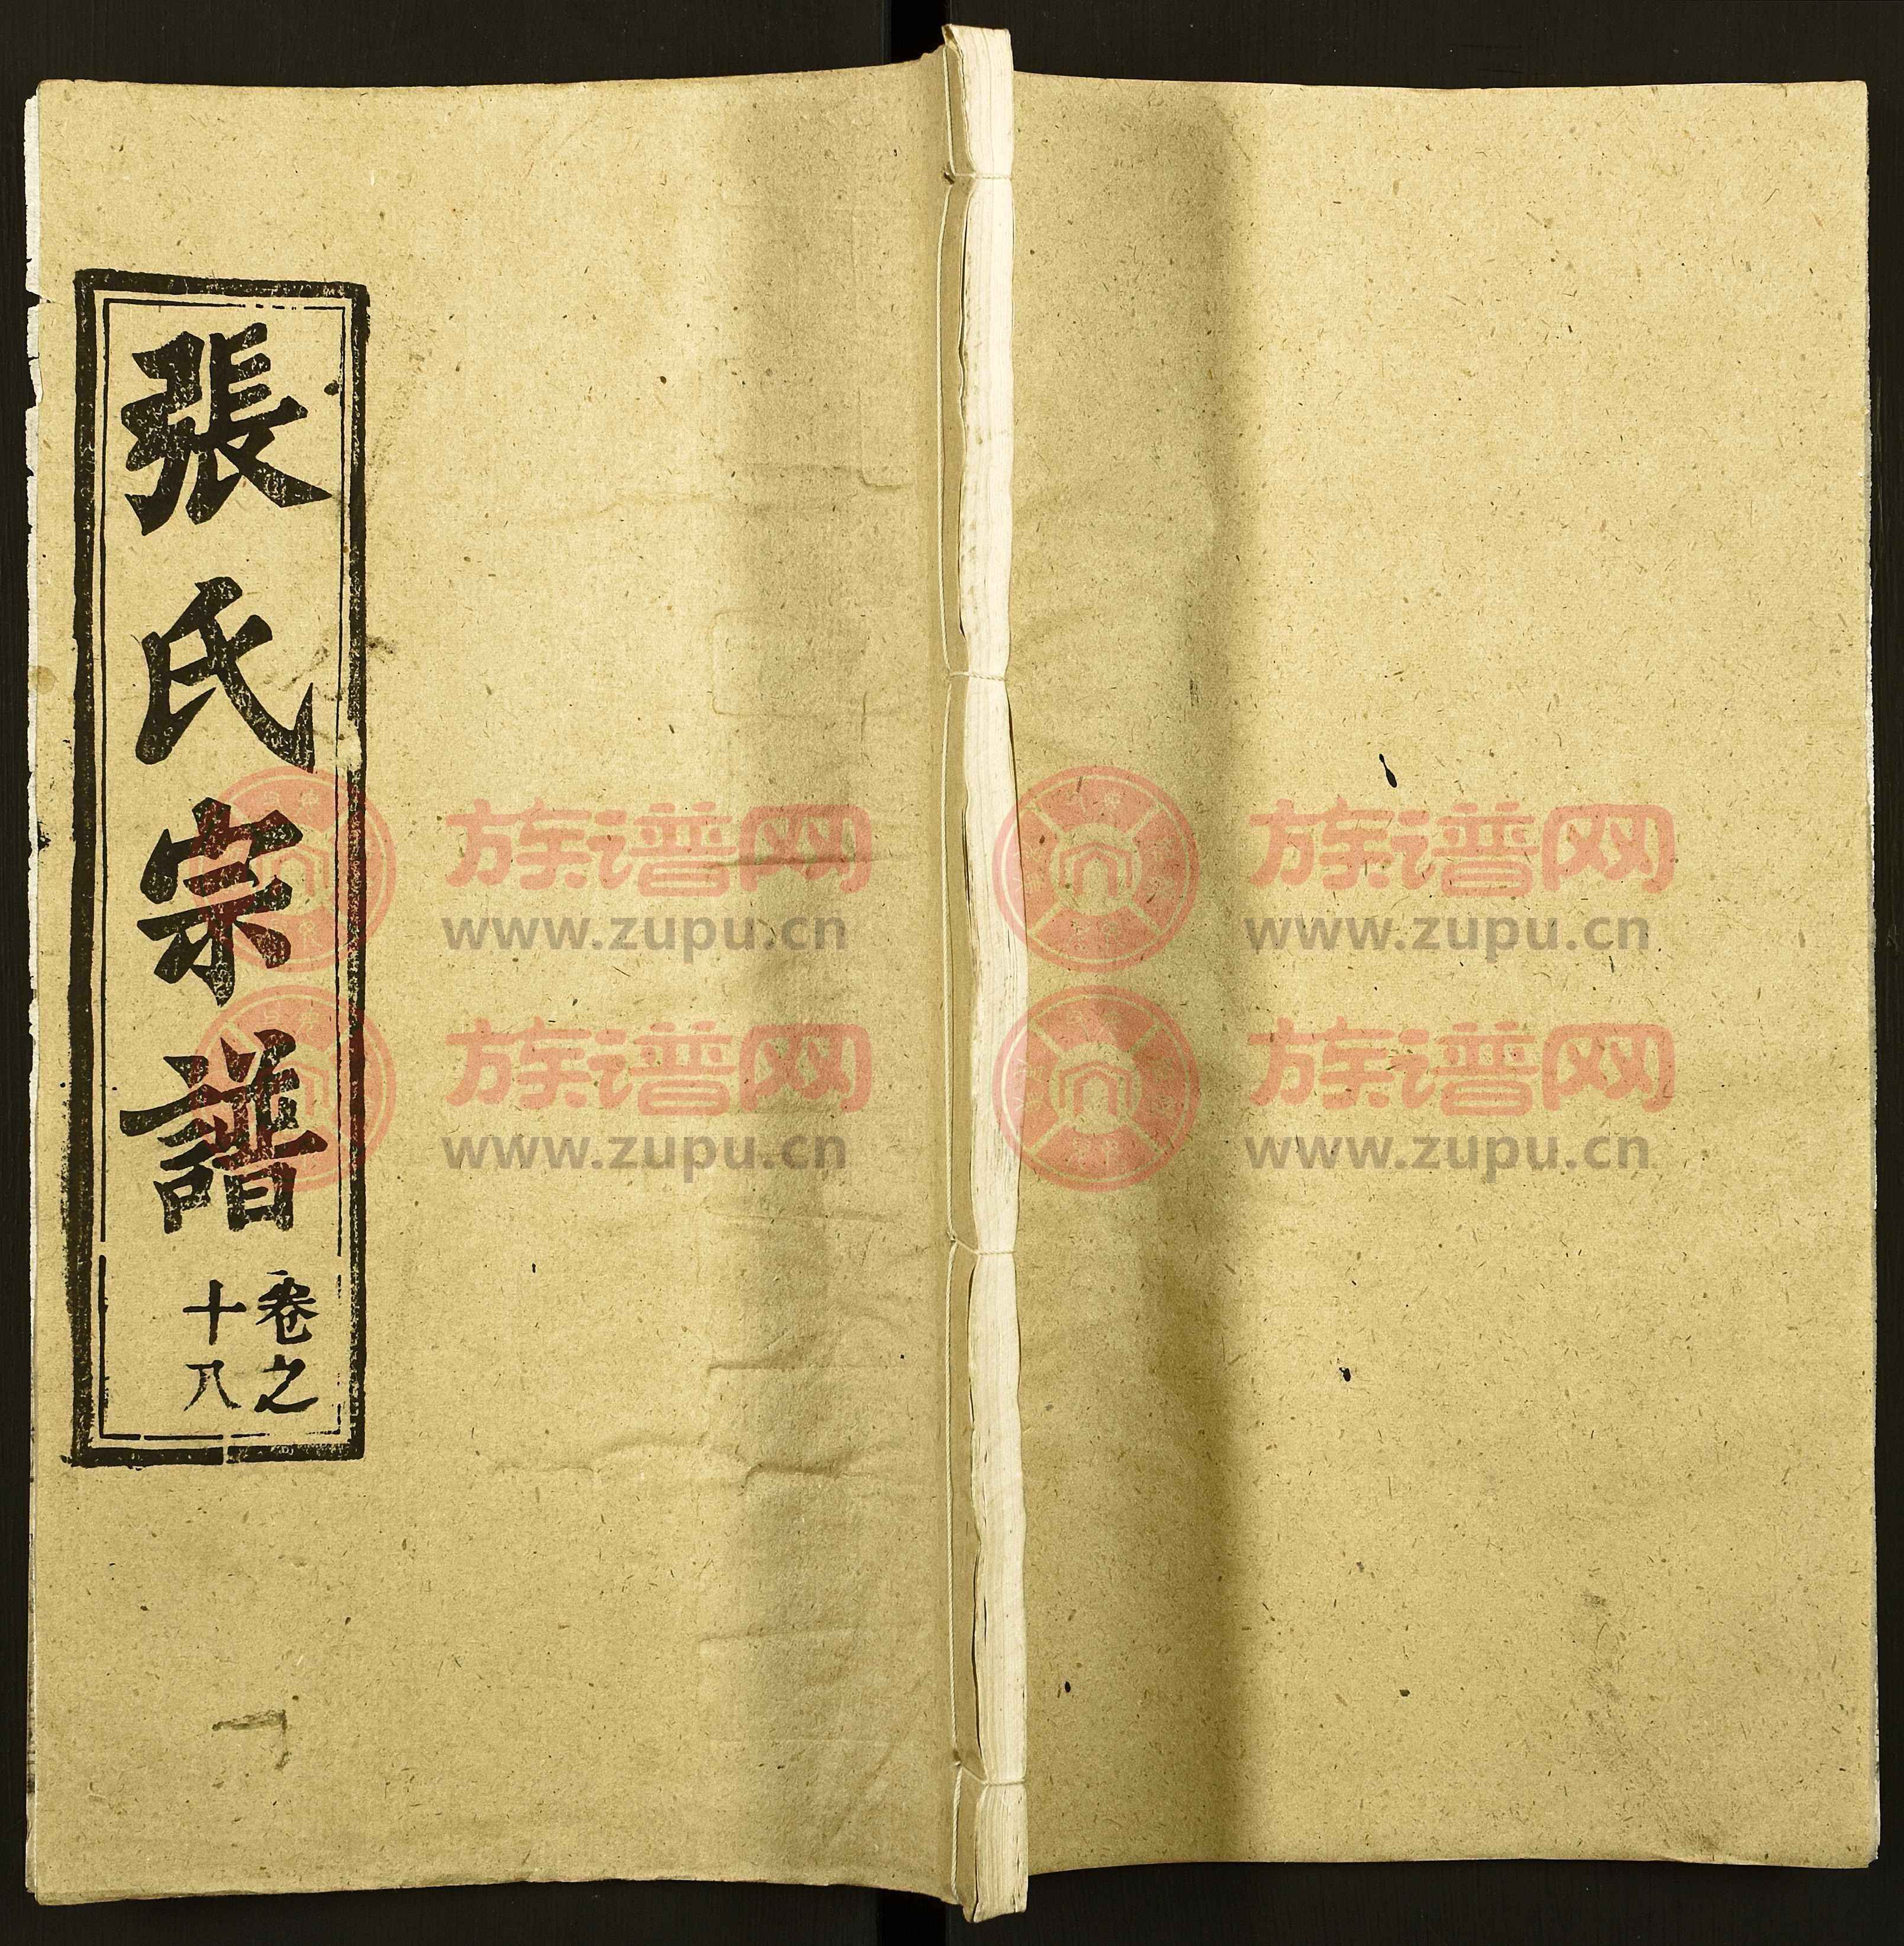 張氏宗譜
卷之
十八
族谱网 族谱网
www.zupu.cn www.zupu.cn
族谱网 族谱网
www.zupu.cn www.zupu.cn